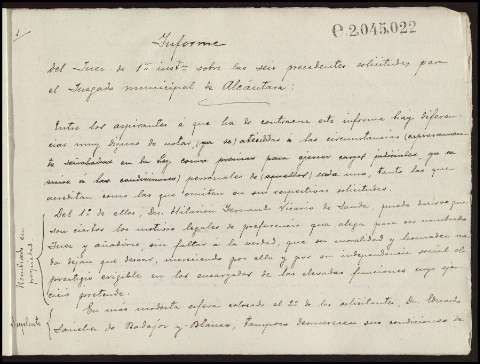 1
C 2.045.022
Informe
del Juez de 1ª instª sobre las seis precedentes solicitudes para
el Juzgado municipal de Alcántara:
Entre los aspirantes á que ha de contraerse este informe hay diferen-
cias muy dignas de notar, (ya se) atendidas á las circunstancias
señaladas en la ley como precisas para ejercer cargos judiciales
personales de (aquellos) cada uno, tanto las que
acreditan como las que omitan en sus respectivas solicitudes.
Del 1º de ellos, Dn. Hilarión Fernando Vicario de Sande, puedo decir que
son ciertos los motivos legales de preferencia que alega para ser nombrado
Juez y añadirse, sin faltar á la verdad, que su moralidad y honradez na-
da dejan que desear, mereciendo por ella y por su independencia social el
prestigio exigible en los encargados de las elevadas funciones cuyo ejer-
cicio pretende.
Nombrado en
propiedad
En mas modesta esfera colocado el 2º de los solicitantes, Dn. Eduardo
Suplente
Sanchez de Badajoz y Blanco, tampoco desmerecen sus condiciones de